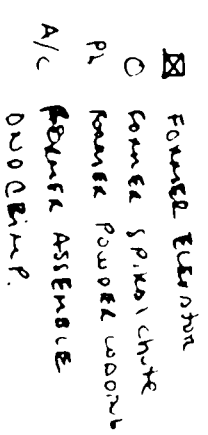 ☒ FORMER ELEVATOR
○ FORMER SPIRAL CHUTE
PL FORMER POWDER LOADING
A/C FORMER ASSEMBLE
AND CRIMP.